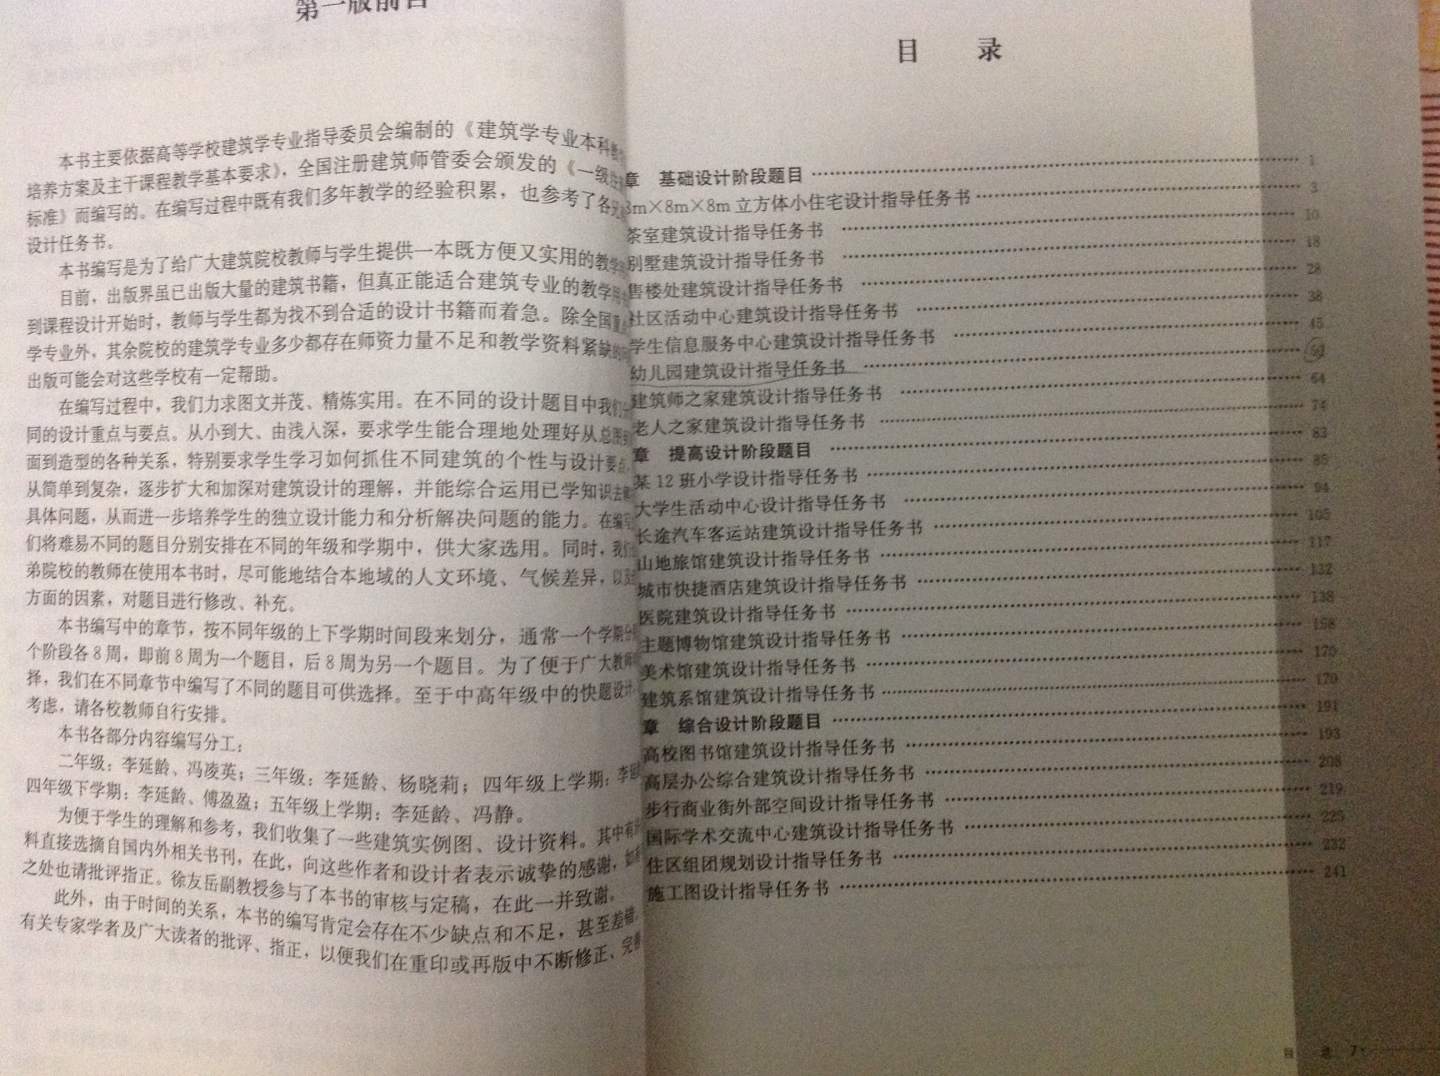 第一版前言
本书主要依据高等学校建筑学专业指导委员会编制的《建筑学专业本科
培养方案及主干课程教学基本要求》，全国注册建筑师管委会颁发的《一级
标准》而编写的。在编写过程中既有我们多年教学的经验积累，也参考了各
设计任务书。
本书编写是为了给广大建筑院校教师与学生提供一本既方便又实用的教学
目前，出版界虽已出版大量的建筑书籍，但真正能适合建筑专业的教学用
到课程设计开始时，教师与学生都为找不到合适的设计书籍而着急。除全国重
学专业外，其余院校的建筑学专业多少都存在师资力量不足和教学资料紧缺的
出版可能会对这些学校有一定帮助。
在编写过程中，我们力求图文并茂、精炼实用。在不同的设计题目中我们
同的设计重点与要点。从小到大、由浅入深，要求学生能合理地处理好从总图
面到造型的各种关系，特别要求学生学习如何抓住不同建筑的个性与设计要点，
从简单到复杂，逐步扩大和加深对建筑设计的理解，并能综合运用已学知识去
具体问题，从而进一步培养学生的独立设计能力和分析解决问题的能力。在编写
们将难易不同的题目分别安排在不同的年级和学期中，供大家选用。同时，我们
弟院校的教师在使用本书时，尽可能地结合本地域的人文环境、气候差异，以及
方面的因素，对题目进行修改、补充。
本书编写中的章节，按不同年级的上下学期时间段来划分，通常一个学期分
个阶段各8周，即前8周为一个题目，后8周为另一个题目。为了便于广大教师
择，我们在不同章节中编写了不同的题目可供选择。至于中高年级中的快题设计，
考虑，请各校教师自行安排。
本书各部分内容编写分工：
二年级：李延龄、冯凌英；三年级：李延龄、杨晓莉；四年级上学期：李延
四年级下学期：李延龄、傅盈盈；五年级上学期：李延龄、冯静。
为便于学生的理解和参考，我们收集了一些建筑实例图、设计资料。其中有
料直接选摘自国内外相关书刊，在此，向这些作者和设计者表示诚挚的感谢，如有
之处也请批评指正。徐友岳副教授参与了本书的审核与定稿，在此一并致谢。
此外，由于时间的关系，本书的编写肯定会存在不少缺点和不足，甚至差错，
有关专家学者及广大读者的批评、指正，以便我们在重印或再版中不断修正、完善
目 录
章 基础设计阶段题目 …… 1
8m×8m×8m 立方体小住宅设计指导任务书 …… 3
茶室建筑设计指导任务书 …… 10
别墅建筑设计指导任务书 …… 18
售楼处建筑设计指导任务书 …… 28
社区活动中心建筑设计指导任务书 …… 38
学生信息服务中心建筑设计指导任务书 …… 45
幼儿园建筑设计指导任务书 ……
建筑师之家建筑设计指导任务书 …… 64
老人之家建筑设计指导任务书 …… 74
章 提高设计阶段题目 …… 83
某 12 班小学设计指导任务书 …… 85
大学生活动中心设计指导任务书 …… 94
长途汽车客运站建筑设计指导任务书 …… 105
山地旅馆建筑设计指导任务书 …… 117
城市快捷酒店建筑设计指导任务书 …… 132
医院建筑设计指导任务书 …… 138
主题博物馆建筑设计指导任务书 …… 158
美术馆建筑设计指导任务书 …… 170
建筑系馆建筑设计指导任务书 …… 179
章 综合设计阶段题目 …… 191
高校图书馆建筑设计指导任务书 …… 193
高层办公综合建筑设计指导任务书 …… 208
步行商业街外部空间设计指导任务书 …… 219
国际学术交流中心建筑设计指导任务书 …… 225
住区组团规划设计指导任务书 …… 232
施工图设计指导任务书 …… 241
目 录 7